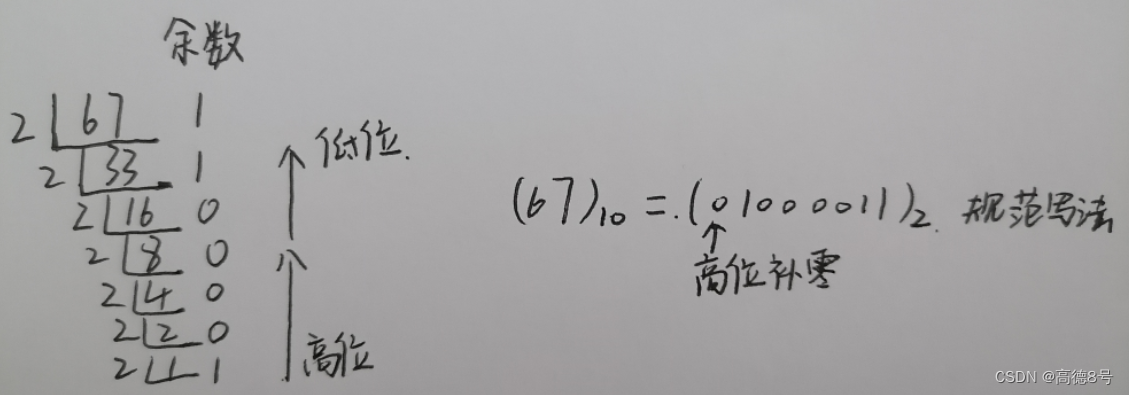 余数
2 67 1
2 33 1
2 16 0
2 8 0
2 4 0
2 2 0
2 1 1
低位.
高位
(67)10 = (01000011)2. 规范写法
高位补零
CSDN @高德8号